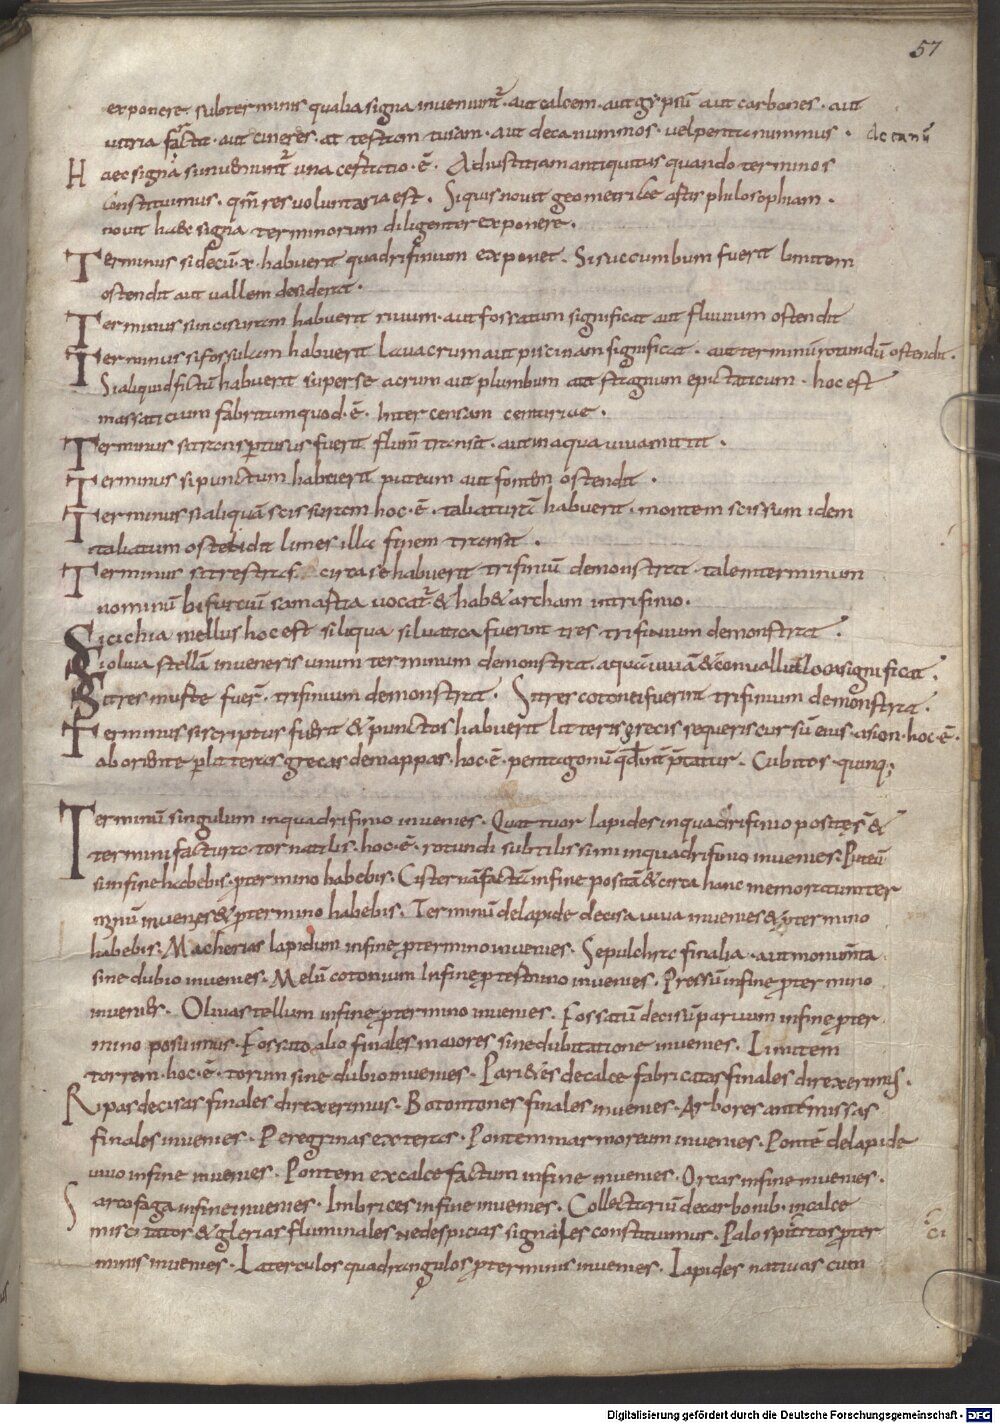 57
exponere subterminis qualia signa inveniuntr̄ · aut calcem · aut gypsū aut carbones · aut
vitria fracta · aut cineres · at testam tusam · aut decanummos · vel pentanummus · decanū
Haec signa si inveniuntr̄ una cestitio · ē · Ad iustitiam antiquitus quando terminos
constituimus · qm̄ res voluntaria est · Si quis novit geometri& astris philosophiam ·
novit haec signa terminorum diligenter exponere ·
Terminus si decū · x · habuerit quadrifinium exponet · Si succumbum fuerit limitem
ostendit aut vallem desiderat ·
Terminus si incisuram habuerit rivum · aut fossatum significat aut fluvium ostendit
Terminus si fossulam habuerit lavacrum aut piscinam significat · aut terminū rotundū ostendit ·
Si aliquid fictū habuerit super se acrum aut plumbum aut stagnum epictaticum · hoc est
massaticium fabritum quod · ē · inter censam centuriae ·
Terminus si transpertusus fuerit flum̄ transit · aut in aqua viva mittit ·
Terminus si punctum habuerit puteum aut fontem ostendit ·
Terminus si aliquā scissuram hoc · ē · taliaturā habuerit · montem scissum idem
taliatum ostendit limes illac finem transit ·
Terminus si tres tras circa se habuerit trifiniū demonstrat · tale in terminum
nominū bifurciū samastia vocatr̄ & hab& archam in trifinio ·
Si cichia mellus hoc est siliqua silvatica fuerint tres · trifinium demonstrat ·
Si oliva stellā inveneris unum terminum demonstrat · aquā vivā & convalliū loca significat ·
Si tres muste fuer̄ · trifinium demonstrat · Si tres cotonei fuerint trifinium demonstrat ·
Terminus si scriptus fuerit & punctos habuerit litteris grecis sequeris cursū eius · asion · hoc · ē ·
ab oriente p litteras grecas de mappas · hoc · ē · pentagonū qd̄ Cubitos · quinq;
Terminū singulum in quadrifinio invenies · Quattuor lapides in quadrifinio posites &
termini factura · tornatilis · hoc · ē · rotundi subtilissimi in quadrifinio invenies · Puteū
si in fine habebis · p termino habebis · Cisternā factā in fine positā & circa hanc memoratum ter
minū invenies & p termino habebis · Terminū de lapide decisa viva invenies & p termino
habebis · Macherias lapidum in fine p termino invenies · Sepulchra finalia · aut monumta
sine dubio invenies · Melū cotonium In fine p termino invenies · Pressū in fine p termino
invenies · Olivastellum in fine p termino invenies · Fossatū decisū parvum in fine p ter
mino posuimus · Fossato alio finales maiores sine dubitatione invenies · Limitem
torrem · hoc · ē · torum sine dubio invenies · Pari&es de calce fabricatas finales direxerimus ·
Ripas decisas finales direxerimus · Botontones finales invenies · Arbores ante missas
finales invenies · Peregrinas exteras · Pontem marmoreum invenies · Pontē de lapide
vivo in fine invenies · Pontem ex calce factum in fine invenies · Orcas in fine invenies ·
Sarcofaga in fine invenies · Imbrices in fine invenies · Collectariū de carbonib · in calce
miscitatos & glerias fluminales ne despicias signales constituimus · Palos pictos p ter
minis invenies · Laterculos quadrangulos p terminis invenies · Lapides nativas cum
Digitalisierung gefördert durch die Deutsche Forschungsgemeinschaft - DFG